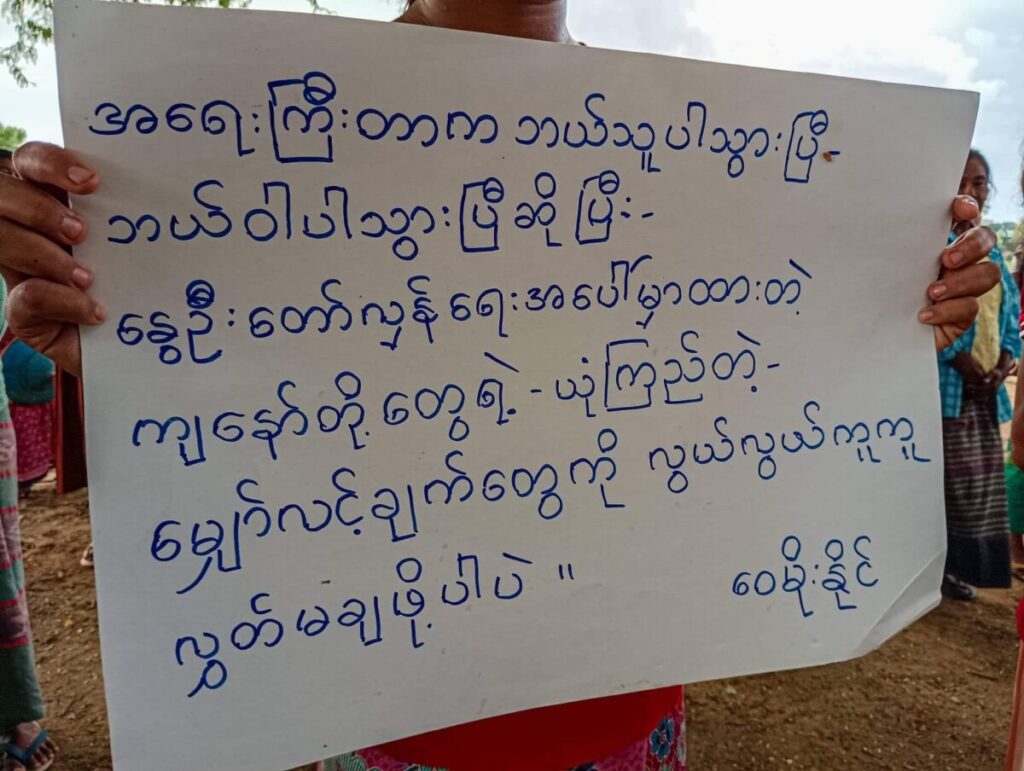 အရေးကြီးတာက ဘယ်သူပါသွားပြီ-
ဘယ်ဝါပါသွားပြီဆိုပြီး-
နွေဦးတော်လှန်ရေးအပေါ်မှာထားတဲ့
ကျနော်တို့တွေရဲ့-ယုံကြည်တဲ့-
မျှော်လင့်ချက်တွေကို လွယ်လွယ်ကူကူ
လွှတ်မချဖို့ပါပဲ "
ဝေမိုးနိုင်